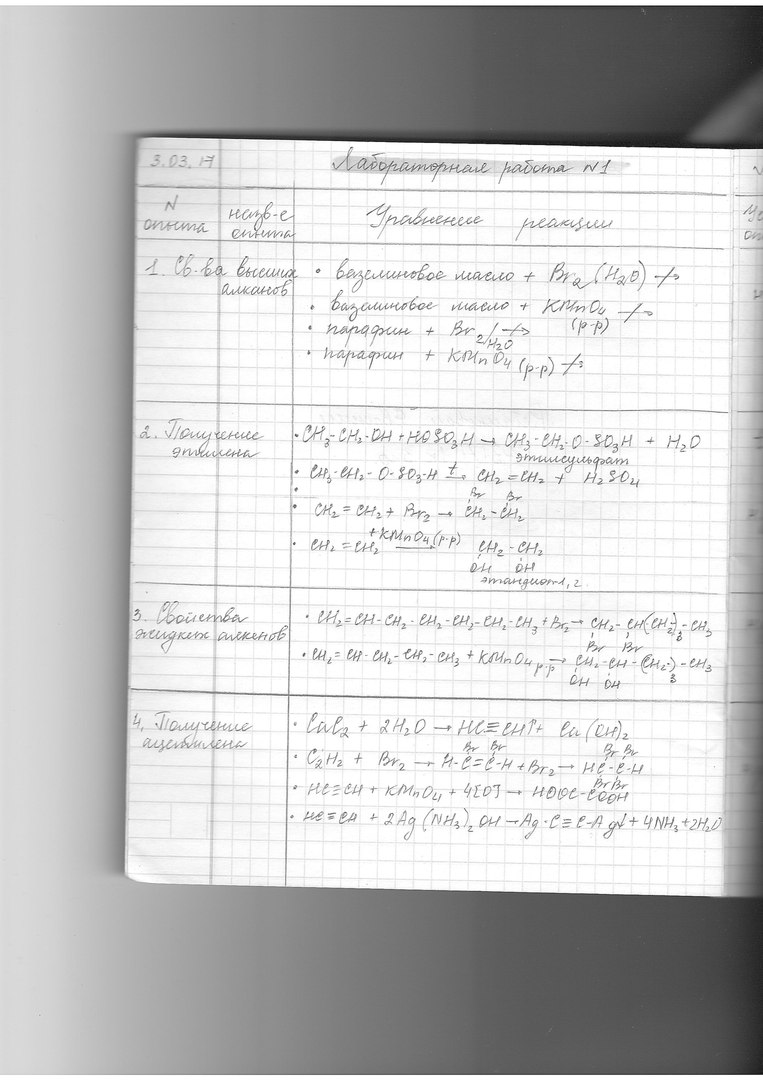 3.03.17 Лабораторная работа N1
N опыта
назв-е опыта
Уравнение реакции
1. Св-ва высших алканов
• вазелиновое масло + Br2 (H2O) -/->
• вазелиновое масло + KMnO4 (р-р) -/->
• парафин + Br2/H2O -/->
• парафин + KMnO4 (р-р) -/->
2. Получение этилена
• CH3-CH2-OH + HOSO3H → CH3-CH2-O-SO3H + H2O
этилсульфат
• CH3-CH2-O-SO3-H t→ CH2=CH2 + H2SO4
•
Br Br
• CH2=CH2 + Br2 → CH2-CH2
• CH2=CH2 +KMnO4 (р-р) → CH2-CH2
OH OH
этандиол 1,2
3. Свойства жидких алкенов
• CH2=CH-CH2-CH2-CH2-CH2-CH3 + Br2 → CH2-CH(CH2)-CH3
Br Br
• CH2=CH-CH2-CH2-CH3 + KMnO4 р-р → CH2-CH-(CH2)3-CH3
OH OH
4. Получение ацетилена
• CaC2 + 2H2O → HC≡CH↑ + Ca(OH)2
Br Br Br Br
• C2H2 + Br2 → H-C=C-H + Br2 → HC-C-H
Br Br
• HC≡CH + KMnO4 + 4[O] → HOOC-COOH
• HC≡CH + 2Ag(NH3)2OH → Ag-C≡C-Ag↓ + 4NH3 + 2H2O